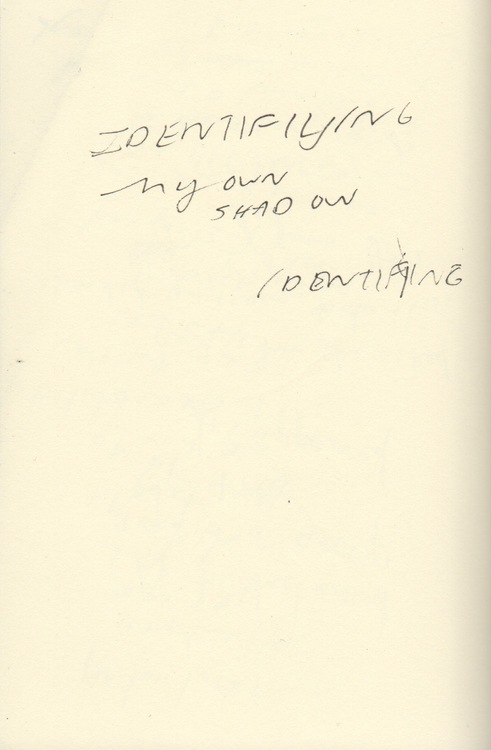 IDENTIFIYING
My OWN
SHADOW
IDENTIFYING